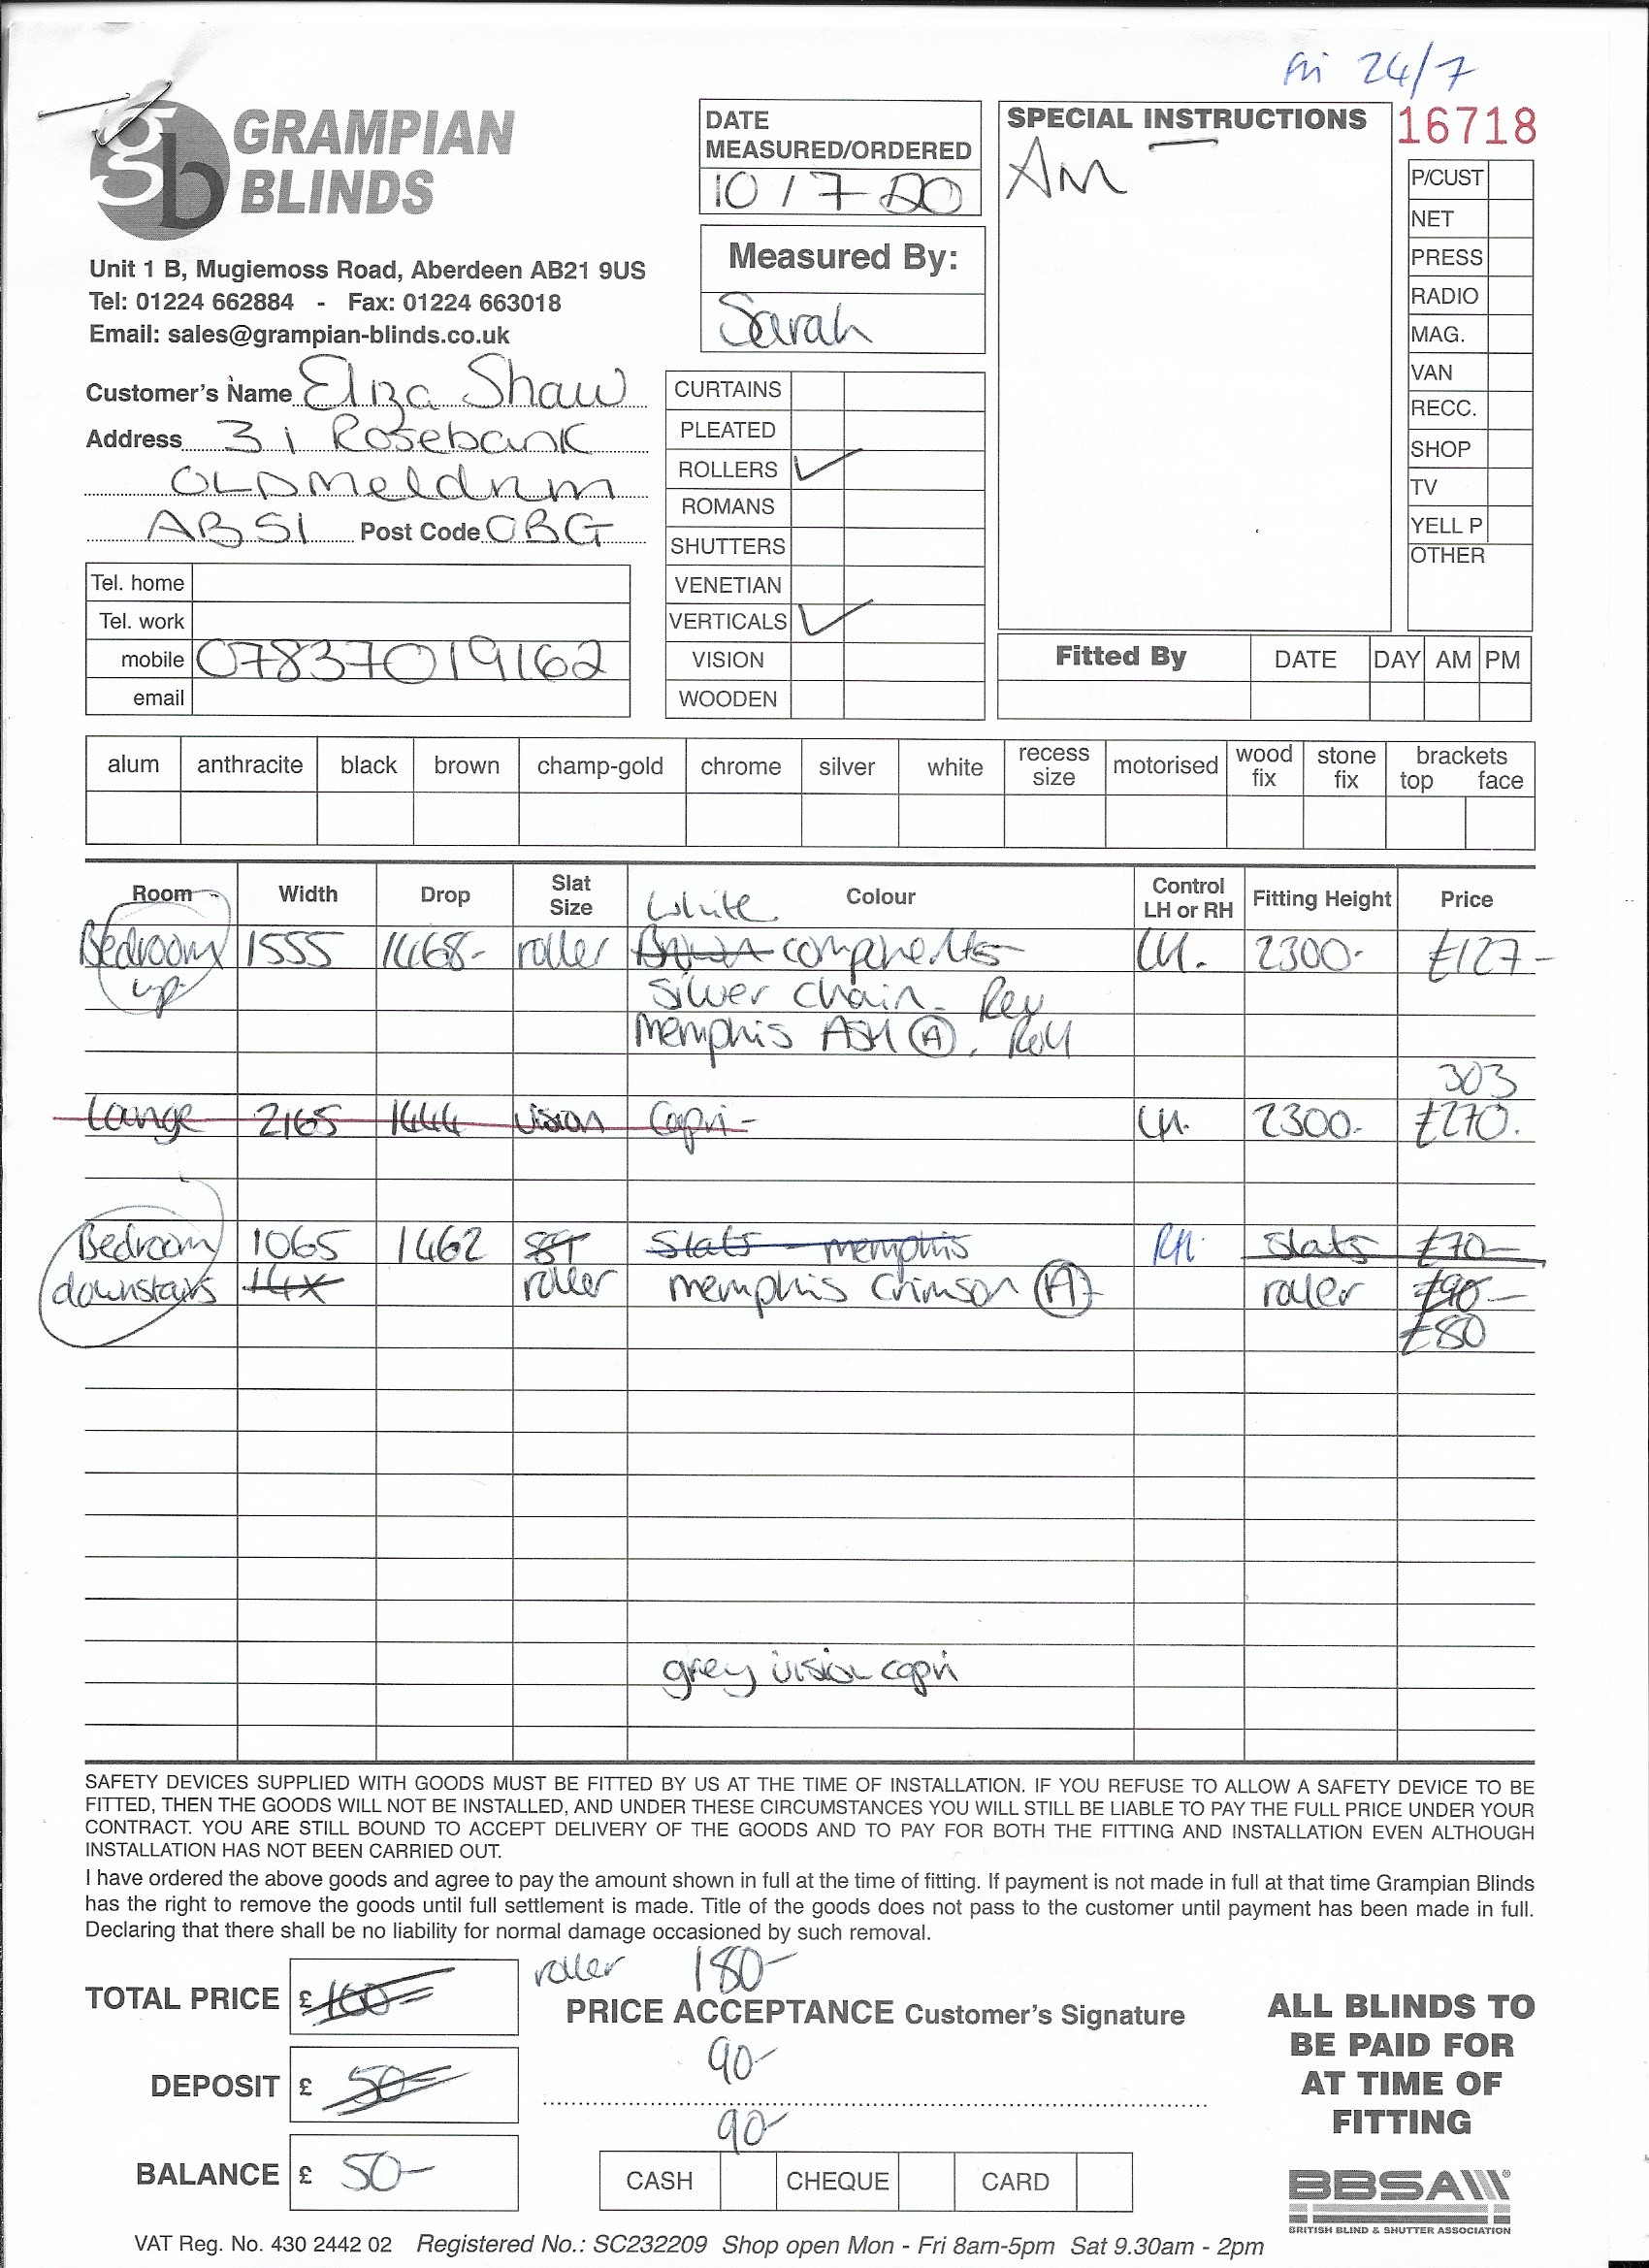 Fri 24/7
GRAMPIAN
BLINDS
Unit 1 B, Mugiemoss Road, Aberdeen AB21 9US
Tel: 01224 662884 - Fax: 01224 663018
Email: sales@grampian-blinds.co.uk
DATE
MEASURED/ORDERED
10/7 20
Measured By:
Sarah
SPECIAL INSTRUCTIONS
AM
16718
P/CUST
NET
PRESS
RADIO
MAG.
VAN
RECC.
SHOP
TV
YELL P
OTHER
Customer's Name Eliza Shaw
Address 31 Rosebank
OLDMeldrum
AB51 Post Code 0BG
Tel. home
Tel. work
mobile 07837019162
email
CURTAINS
PLEATED
ROLLERS ✓
ROMANS
SHUTTERS
VENETIAN
VERTICALS ✓
VISION
WOODEN
Fitted By DATE DAY AM PM
alum anthracite black brown champ-gold chrome silver white recess size motorised wood fix stone fix brackets top face
Room Width Drop Slat Size Colour Control LH or RH Fitting Height Price
White
Bedroom 1555 1468- roller components LH. 2300- £127-
up silver chain. Rev
Memphis ASH (A). Roll
303
Lounge 2165 1444 vision Capri- LH. 2300- £270.
Bedroom 1065 1462 Slats - memphis RH. slats £70-
downstairs 14x roller memphis Crimson (A) roller £90-
£80
grey vision capri
SAFETY DEVICES SUPPLIED WITH GOODS MUST BE FITTED BY US AT THE TIME OF INSTALLATION. IF YOU REFUSE TO ALLOW A SAFETY DEVICE TO BE
FITTED, THEN THE GOODS WILL NOT BE INSTALLED, AND UNDER THESE CIRCUMSTANCES YOU WILL STILL BE LIABLE TO PAY THE FULL PRICE UNDER YOUR
CONTRACT. YOU ARE STILL BOUND TO ACCEPT DELIVERY OF THE GOODS AND TO PAY FOR BOTH THE FITTING AND INSTALLATION EVEN ALTHOUGH
INSTALLATION HAS NOT BEEN CARRIED OUT.
I have ordered the above goods and agree to pay the amount shown in full at the time of fitting. If payment is not made in full at that time Grampian Blinds
has the right to remove the goods until full settlement is made. Title of the goods does not pass to the customer until payment has been made in full.
Declaring that there shall be no liability for normal damage occasioned by such removal.
roller 180-
TOTAL PRICE £ 100-
PRICE ACCEPTANCE Customer's Signature
90-
DEPOSIT £ 50-
90-
BALANCE £ 50-
CASH CHEQUE CARD
ALL BLINDS TO
BE PAID FOR
AT TIME OF
FITTING
BBSA
BRITISH BLIND & SHUTTER ASSOCIATION
VAT Reg. No. 430 2442 02 Registered No.: SC232209 Shop open Mon - Fri 8am-5pm Sat 9.30am - 2pm